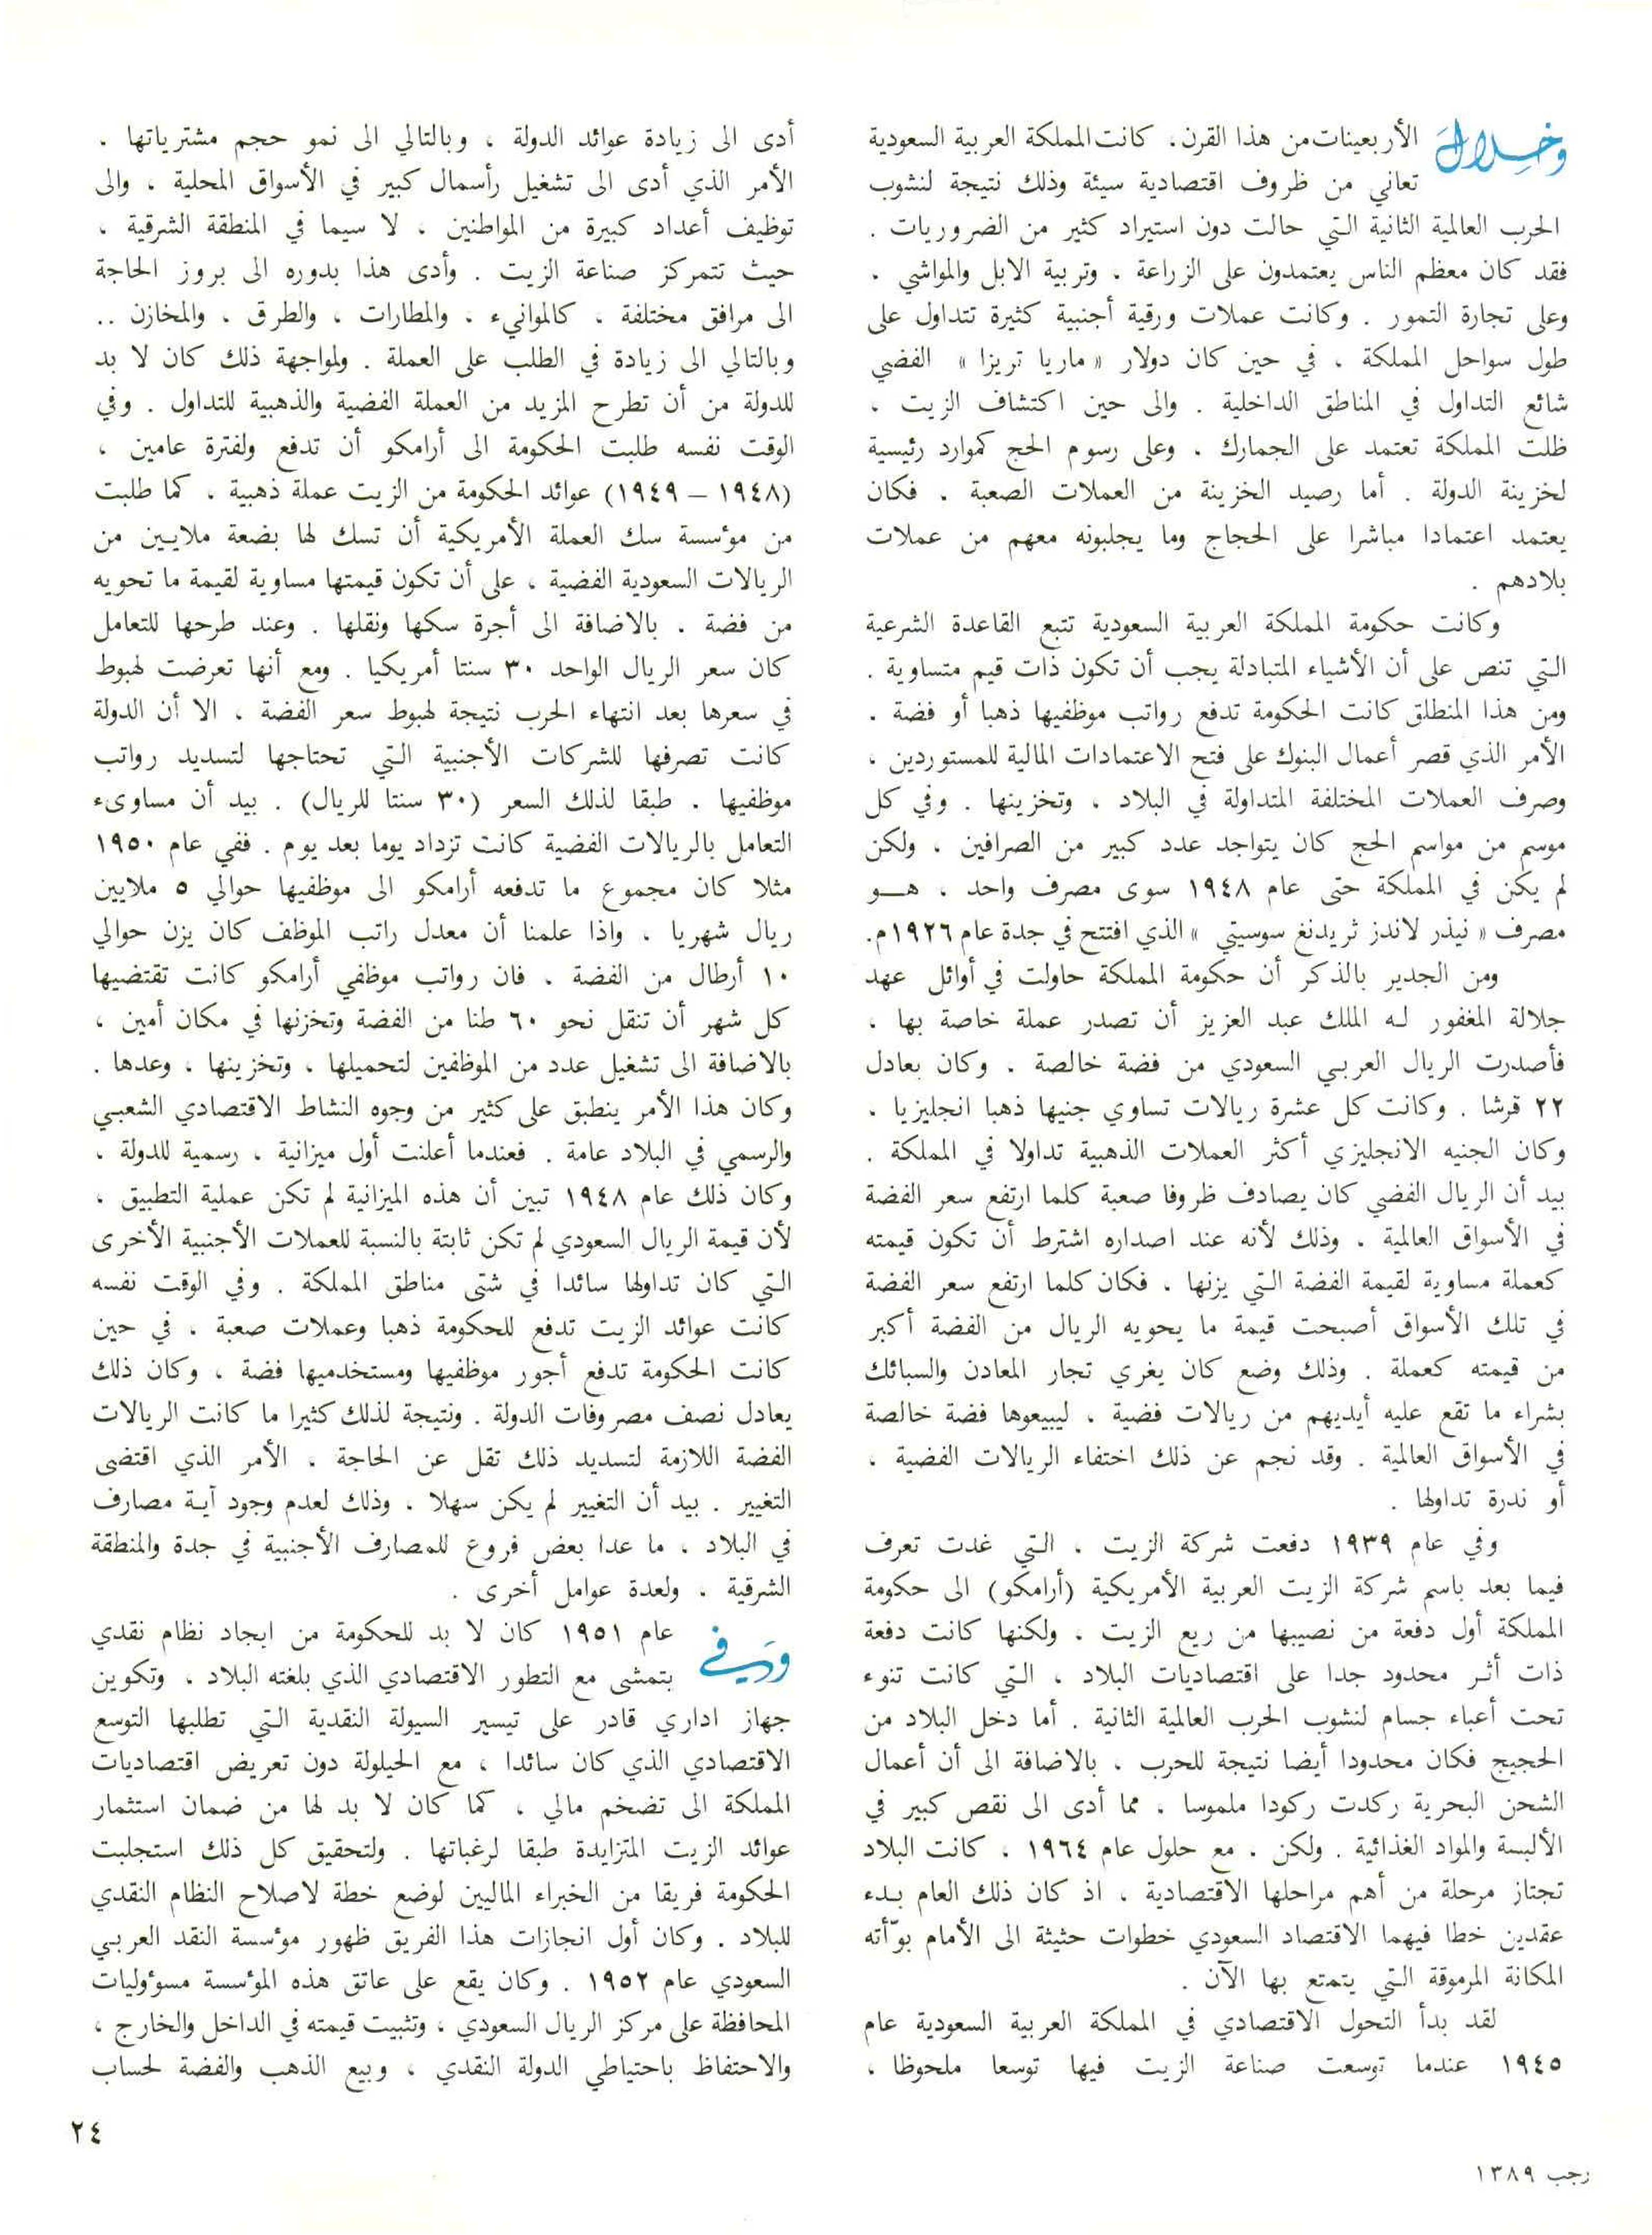 وخلال الأربعينات من هذا القرن، كانت المملكة العربية السعودية
تعاني من ظروف اقتصادية سيئة وذلك نتيجة لنشوب
الحرب العالمية الثانية التي حالت دون استيراد كثير من الضروريات .
فقد كان معظم الناس يعتمدون على الزراعة ، وتربية الابل والمواشي ،
وعلى تجارة التمور . وكانت عملات ورقية أجنبية كثيرة تتداول على
طول سواحل المملكة ، في حين كان دولار « ماريا تريزا » الفضي
شائع التداول في المناطق الداخلية . والى حين اكتشاف الزيت ،
ظلت المملكة تعتمد على الجمارك ، وعلى رسوم الحج كموارد رئيسية
لخزينة الدولة . أما رصيد الخزينة من العملات الصعبة ، فكان
يعتمد اعتمادا مباشرا على الحجاج وما يجلبونه معهم من عملات
بلادهم .
وكانت حكومة المملكة العربية السعودية تتبع القاعدة الشرعية
التي تنص على أن الأشياء المتبادلة يجب أن تكون ذات قيم متساوية .
ومن هذا المنطلق كانت الحكومة تدفع رواتب موظفيها ذهبا أو فضة ،
الأمر الذي قصر أعمال البنوك على فتح الاعتمادات المالية للمستوردين ،
وصرف العملات المختلفة المتداولة في البلاد ، وتخزينها . وفي كل
موسم من مواسم الحج كان يتواجد عدد كبير من الصرافين ، ولكن
لم يكن في المملكة حتى عام ١٩٤٨ سوى مصرف واحد ، هــو
مصرف « نيذر لاندز ثريدنغ سوسيتي » الذي افتتح في جدة عام ١٩٢٦م.
ومن الجدير بالذكر أن حكومة المملكة حاولت في أوائل عهد
جلالة المغفور له الملك عبد العزيز أن تصدر عملة خاصة بها ،
فأصدرت الريال العربي السعودي من فضة خالصة . وكان بعادل
٢٢ قرشا . وكانت كل عشرة ريالات تساوي جنيها ذهبا انجليزيا ،
وكان الجنيه الانجليزي أكثر العملات الذهبية تداولا في المملكة .
بيد أن الريال الفضي كان يصادف ظروفا صعبة كلما ارتفع سعر الفضة
في الأسواق العالمية ، وذلك لأنه عند اصداره اشترط أن تكون قيمته
كعملة مساوية لقيمة الفضة التي يزنها ، فكان كلما ارتفع سعر الفضة
في تلك الأسواق أصبحت قيمة ما يحويه الريال من الفضة أكبر
من قيمته كعملة . وذلك وضع كان يغري تجار المعادن والسبائك
بشراء ما تقع عليه أيديهم من ريالات فضية ، ليبيعوها فضة خالصة
في الأسواق العالمية . وقد نجم عن ذلك اختفاء الريالات الفضية ،
أو ندرة تداولها .
وفي عام ١٩٣٩ دفعت شركة الزيت ، التي غدت تعرف
فيما بعد باسم شركة الزيت العربية الأمريكية (أرامكو) الى حكومة
المملكة أول دفعة من نصيبها من ريع الزيت ، ولكنها كانت دفعة
ذات أثر محدود جدا على اقتصاديات البلاد ، التي كانت تنوء
تحت أعباء جسام لنشوب الحرب العالمية الثانية . أما دخل البلاد من
الحجيج فكان محدودا أيضا نتيجة للحرب ، بالاضافة الى أن أعمال
الشحن البحرية ركدت ركودا ملموسا ، مما أدى الى نقص كبير في
الألبسة والمواد الغذائية . ولكن ، مع حلول عام ١٩٦٤ ، كانت البلاد
تجتاز مرحلة من أهم مراحلها الاقتصادية ، اذ كان ذلك العام بدء
عقدين خطا فيهما الاقتصاد السعودي خطوات حثيثة الى الأمام بوّأته
المكانة المرموقة التي يتمتع بها الآن .
لقد بدأ التحول الاقتصادي في المملكة العربية السعودية عام
١٩٤٥ عندما توسعت صناعة الزيت فيها توسعا ملحوظا ،
أدى الى زيادة عوائد الدولة ، وبالتالي الى نمو حجم مشترياتها ،
الأمر الذي أدى الى تشغيل رأسمال كبير في الأسواق المحلية ، والى
توظيف أعداد كبيرة من المواطنين ، لا سيما في المنطقة الشرقية ،
حيث تتمركز صناعة الزيت . وأدى هذا بدوره الى بروز الحاجة
الى مرافق مختلفة ، كالموانيء ، والمطارات ، والطرق ، والمخازن ..
وبالتالي الى زيادة في الطلب على العملة . ولمواجهة ذلك كان لا بد
للدولة من أن تطرح المزيد من العملة الفضية والذهبية للتداول . وفي
الوقت نفسه طلبت الحكومة الى أرامكو أن تدفع ولفترة عامين ،
(١٩٤٨ – ١٩٤٩) عوائد الحكومة من الزيت عملة ذهبية ، كما طلبت
من مؤسسة سك العملة الأمريكية أن تسك لها بضعة ملايين من
الريالات السعودية الفضية ، على أن تكون قيمتها مساوية لقيمة ما تحويه
من فضة ، بالاضافة الى أجرة سكها ونقلها . وعند طرحها للتعامل
كان سعر الريال الواحد ٣٠ سنتا أمريكيا . ومع أنها تعرضت لهبوط
في سعرها بعد انتهاء الحرب نتيجة لهبوط سعر الفضة ، الا أن الدولة
كانت تصرفها للشركات الأجنبية التي تحتاجها لتسديد رواتب
موظفيها ، طبقا لذلك السعر (٣٠ سنتا للريال) . بيد أن مساوىء
التعامل بالريالات الفضية كانت تزداد يوما بعد يوم . ففي عام ١٩٥٠
مثلا كان مجموع ما تدفعه أرامكو الى موظفيها حوالي ٥ ملايين
ريال شهريا ، واذا علمنا أن معدل راتب الموظف كان يزن حوالي
١٠ أرطال من الفضة ، فان رواتب موظفي أرامكو كانت تقتضيها
كل شهر أن تنقل نحو ٦٠ طنا من الفضة وتخزنها في مكان أمين ،
بالاضافة الى تشغيل عدد من الموظفين لتحميلها ، وتخزينها ، وعدها .
وكان هذا الأمر ينطبق على كثير من وجوه النشاط الاقتصادي الشعبي
والرسمي في البلاد عامة . فعندما أعلنت أول ميزانية ، رسمية للدولة ،
وكان ذلك عام ١٩٤٨ تبين أن هذه الميزانية لم تكن عملية التطبيق ،
لأن قيمة الريال السعودي لم تكن ثابتة بالنسبة للعملات الأجنبية الأخرى
التي كان تداولها سائدا في شتى مناطق المملكة . وفي الوقت نفسه
كانت عوائد الزيت تدفع للحكومة ذهبا وعملات صعبة ، في حين
كانت الحكومة تدفع أجور موظفيها ومستخدميها فضة ، وكان ذلك
يعادل نصف مصروفات الدولة . ونتيجة لذلك كثيرا ما كانت الريالات
الفضة اللازمة لتسديد ذلك تقل عن الحاجة ، الأمر الذي اقتضى
التغيير . بيد أن التغيير لم يكن سهلا ، وذلك لعدم وجود آية مصارف
في البلاد ، ما عدا بعض فروع للمصارف الأجنبية في جدة والمنطقة
الشرقية ، ولعدة عوامل أخرى .
وفي عام ١٩٥١ كان لا بد للحكومة من ايجاد نظام نقدي
بتمشى مع التطور الاقتصادي الذي بلغته البلاد ، وتكوين
جهاز اداري قادر على تيسير السيولة النقدية التي تطلبها التوسع
الاقتصادي الذي كان سائدا ، مع الحيلولة دون تعريض اقتصاديات
المملكة الى تضخم مالي ، كما كان لا بد لها من ضمان استثمار
عوائد الزيت المتزايدة طبقا لرغباتها . ولتحقيق كل ذلك استجلبت
الحكومة فريقا من الخبراء الماليين لوضع خطة لاصلاح النظام النقدي
للبلاد . وكان أول انجازات هذا الفريق ظهور مؤسسة النقد العربي
السعودي عام ١٩٥٢ . وكان يقع على عاتق هذه المؤسسة مسؤوليات
المحافظة على مركز الريال السعودي ، وتثبيت قيمته في الداخل والخارج ،
والاحتفاظ باحتياطي الدولة النقدي ، وبيع الذهب والفضة لحساب
٢٤
رجب ١٣٨٩